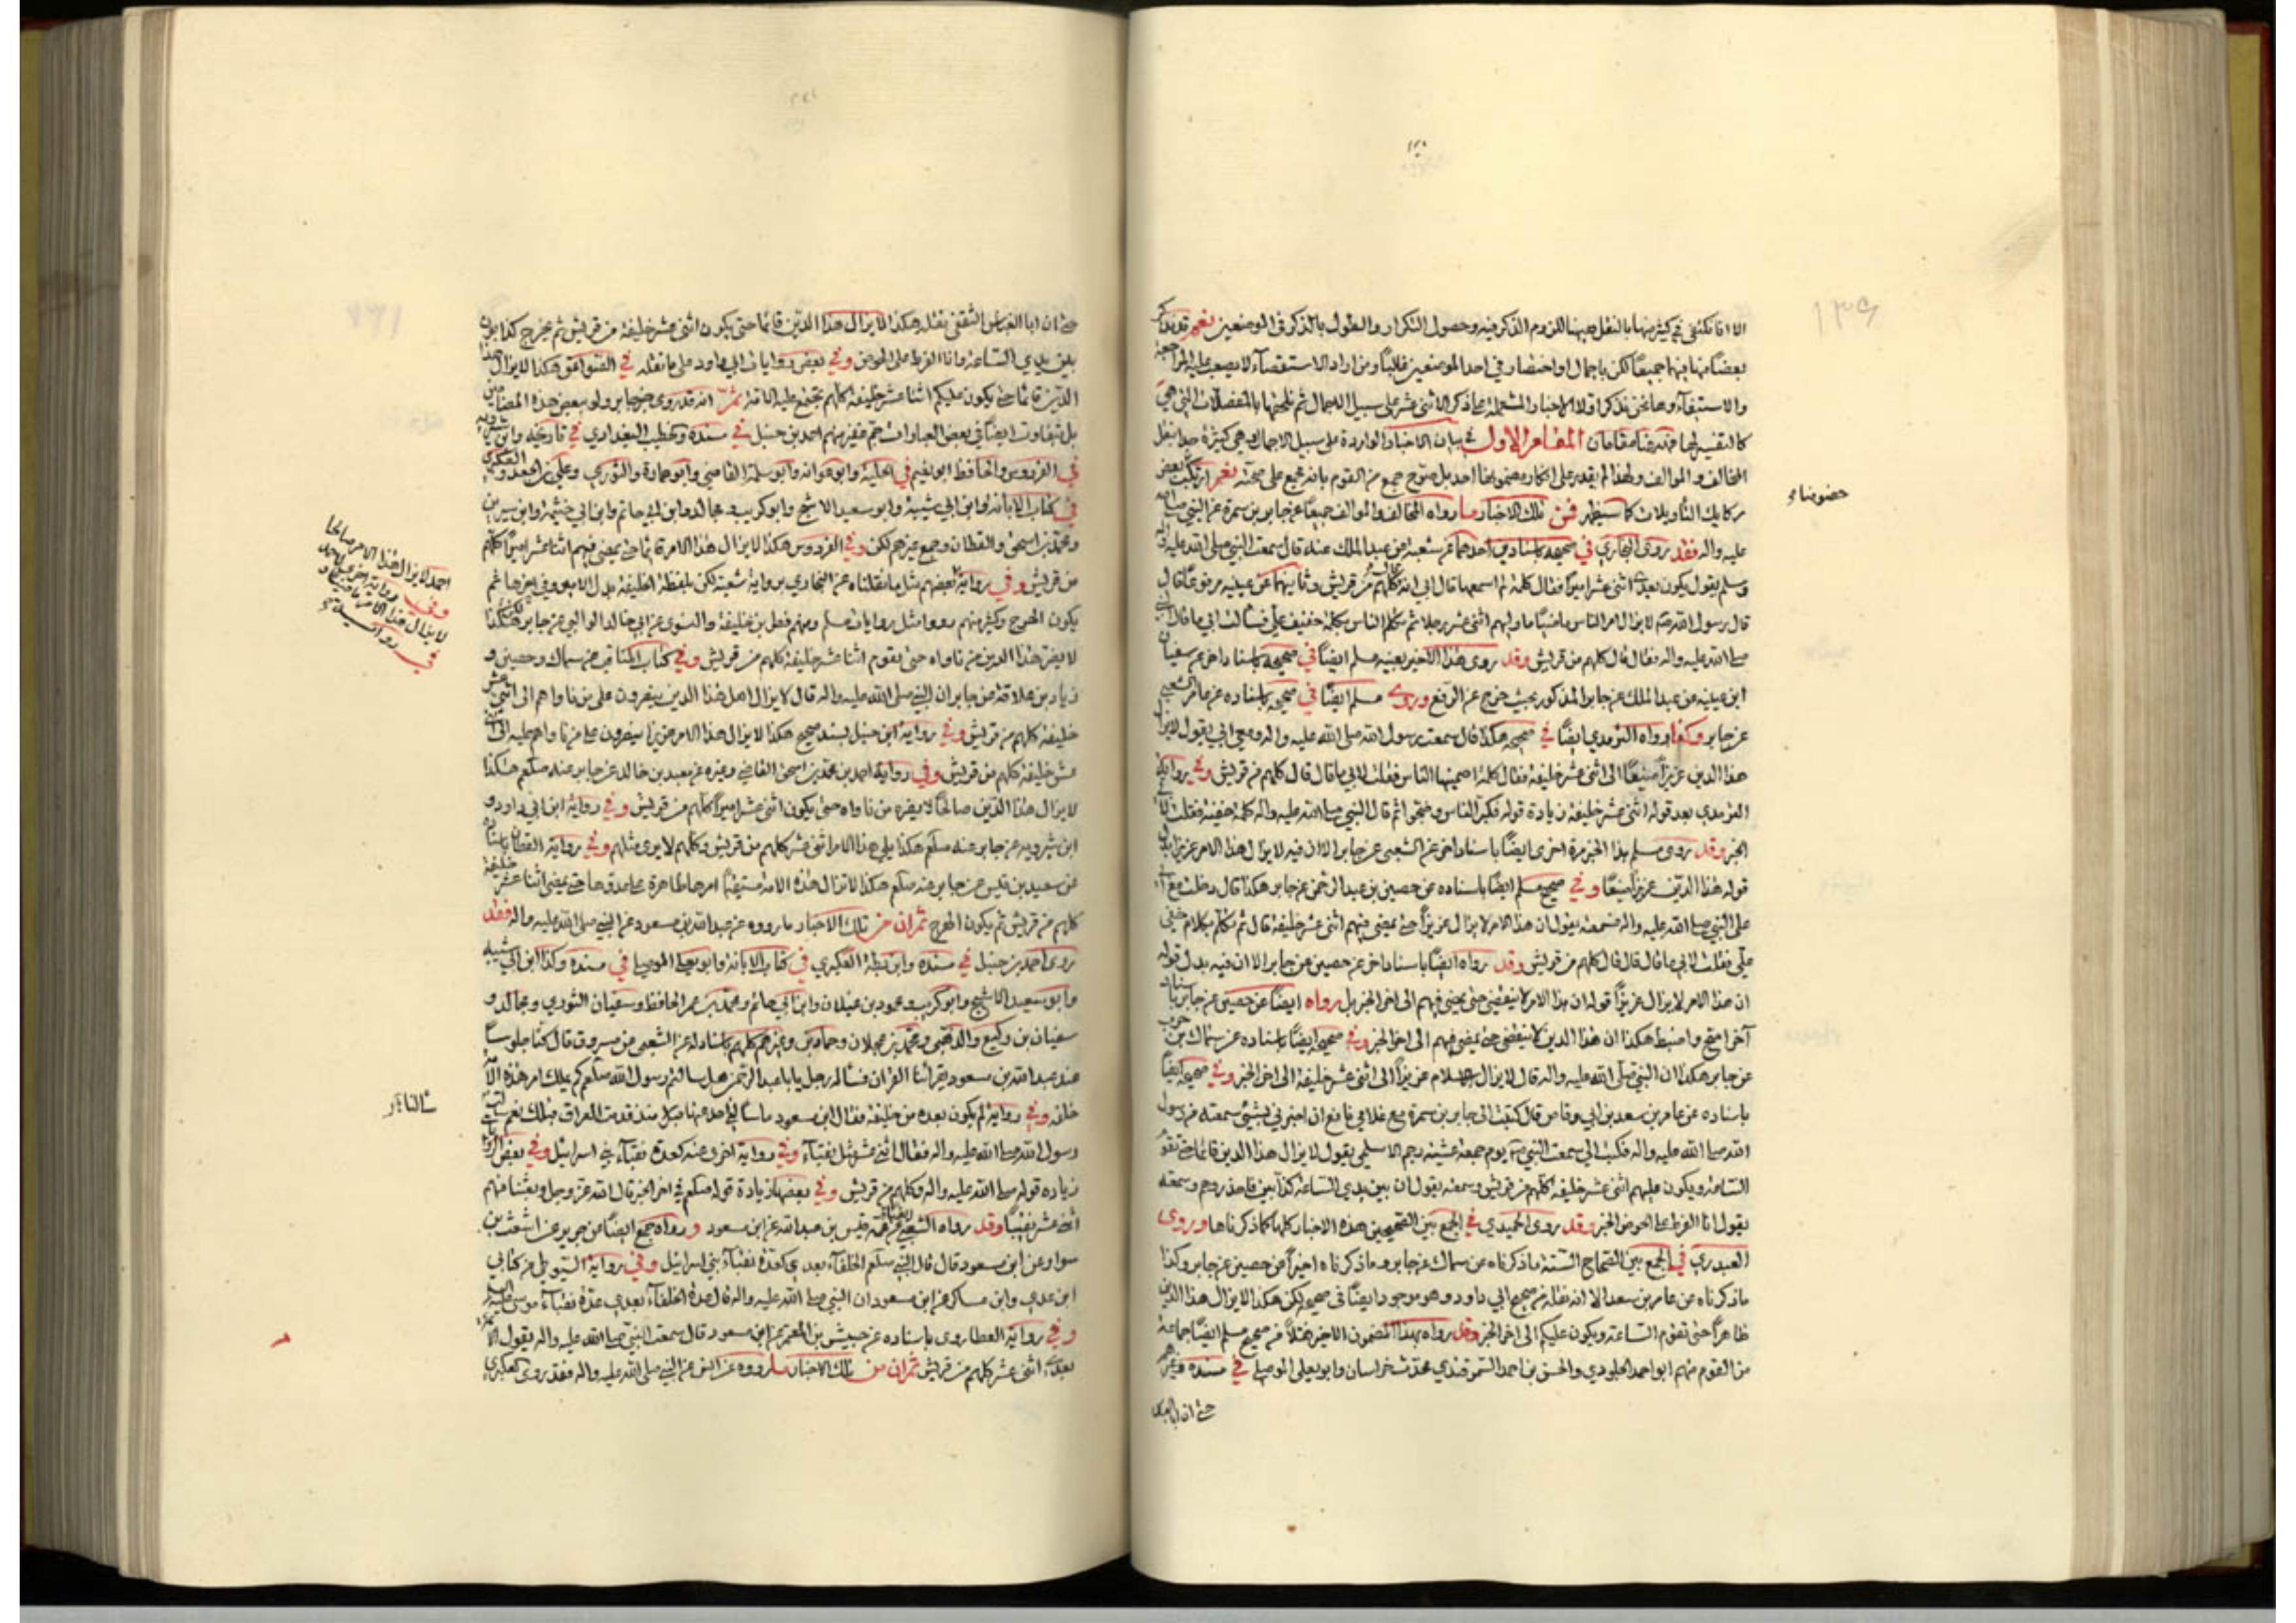 الا انا نكتفي في كثير منها بالنقل هيهنا للزوم الذكر فيه وحصول التكرار والطول بالذكر في الموضعين نعم قد نذكر
بعضا منها فيهما جميعا لكن باجمال او اختصار في احد الموضعين غالبا ومن اراد الاستقصاء لا يصعب عليه المراجعة
والاستيفاء وها نحن نذكر اولا الاخبار المشتملة على ذكر الاثنى عشر على سبيل الاجمال ثم نلحقها بالمفصلات التي هي
كالتفسير لها فهيهنا مقامان المقام الاول في بيان الاخبار الواردة على سبيل الاجمال وهي كثيرة جدا بنقل
المخالف والموالف ولهذا لم يقدر على انكار مضمونها احد بل صرح جمع من القوم بانه مجمع على صحته نعم ارتكب بعض
ركايك التأويلات كما سيظهر فمن تلك الاخبار ما رواه المخالف والموالف جميعا عن جابر بن سمرة عن النبي صلى الله
عليه واله فقد روى البخاري في صحيحه باسنادين احدهما عن شعبة عن عبد الملك عنه قال سمعت النبي صلى الله عليه واله
وسلم يقول يكون بعدي اثنى عشر اميرا فقال كلمة لم اسمعها قال ابي انه قال كلهم من قريش وثانيهما عن عيينه مرفوعا قال
قال رسول الله ص لا يزال امر الناس ماضيا ما وليهم اثنى عشر رجلا ثم تكلم الناس بكلمة خفيت علي فسالت ابي ما قال
صلى الله عليه واله فقال قال كلهم من قريش وقد روى هذا الاخير بعينه مسلم ايضا في صحيحه باسناد اخر عن سفيان
ابن عيينه عن عبد الملك عن جابر المذكور بحيث خرج عن الرفع وروى مسلم ايضا في صحيحه باسناده عن عامر الشعبي
عن جابر وكذا رواه الترمذي ايضا في صحيحه هكذا قال سمعت رسول الله صلى الله عليه واله ومعي ابي يقول لا يزال
هذا الدين عزيزا منيعا الى اثنى عشر خليفة فقال كلمة اصمنيها الناس فقلت لابي ما قال قال كلهم من قريش وفي رواية
الترمذي بعد قوله اثنى عشر خليفة زيادة قوله فكبر الناس وضجوا ثم قال النبي صلى الله عليه واله كلمة خفيفة فقلت لابي
الخبر وقد روى مسلم هذا الخبر مرة اخرى ايضا باسناد اخر عن الشعبي عن جابر الا ان فيه لا يزال هذا الامر عزيزا بدل
قوله هذا الدين عزيزا منيعا وفي صحيح مسلم ايضا باسناده عن حصين بن عبد الرحمن عن جابر هكذا قال دخلت مع ابي
على النبي صلى الله عليه واله فسمعته يقول ان هذا الامر لا يزال عزيزا حتى يمضي فيهم اثنى عشر خليفة قال ثم تكلم بكلام خفي
علي فقلت لابي ما قال قال قال كلهم من قريش وقد رواه ايضا باسناد اخر عن حصين عن جابر الا ان فيه بدل قوله
ان هذا الامر لا يزال عزيزا قوله ان هذا الامر لا ينقضي حتى يمضي فيهم الى اخر الخبر بل رواه ايضا عن حصين عن جابر باسناد
آخر اصح واضبط هكذا ان هذا الدين لا ينقضي حتى يمضي فيهم الى اخر الخبر وفي صحيحه ايضا باسناده عن سماك بن حرب
عن جابر هكذا ان النبي صلى الله عليه واله قال لا يزال الاسلام عزيزا الى اثنى عشر خليفة الى اخر الخبر وفي صحيحه ايضا
باسناده عن عامر بن سعد بن ابي وقاص قال كتبت الى جابر بن سمرة مع غلامي نافع ان اخبرني بشيء سمعته من رسول
الله صلى الله عليه واله فكتب الي سمعت النبي ص يوم جمعة عشية رجم الاسلمي يقول لا يزال هذا الدين قائما حتى تقوم
الساعة ويكون عليهم اثنى عشر خليفة كلهم من قريش وسمعته يقول ان بين يدي الساعة كذابين فاحذروهم وسمعته
يقول انا الفرط على الحوض الخبر وقد روى الحميدي في الجمع بين الصحيحين هذه الاخبار كلها كما ذكرناها وروى
العبدري في الجمع بين الصحاح الستة ما ذكرناه عن سماك عن جابر وما ذكرناه اخيرا عن حصين عن جابر وكذا
ما ذكرناه عن عامر بن سعد الا انه نقله عن صحيح ابي داود وهو موجود ايضا في صحيحه لكن هكذا لا يزال هذا الدين
ظاهرا حتى تقوم الساعة ويكون عليكم الى اخر الخبر وقد رواه بهذا المضمون الاخير نقلا من صحيح مسلم ايضا جماعة
من القوم منهم ابو احمد الجلودي والحسن بن احمد السمرقندي محدث خراسان وابو يعلى الموصلي في مسنده وغيرهم
حتى ان ابا العباس
حتى ان ابا العباس الثقفي نقله هكذا لا يزال هذا الدين قائما حتى يكون اثنى عشر خليفة من قريش ثم يخرج كذابون
بين يدي الساعة وانا الفرط على الحوض وفي بعض روايات ابي داود على ما نقله في الصواعق هكذا لا يزال هذا
الدين قائما حتى يكون عليكم اثنا عشر خليفة كلهم تجتمع عليه الامة ثم انه قد روى خبر جابر ولو ببعض هذه المضامين
بل بتفاوت ايضا في بعض العبارات جم غفير منهم احمد بن حنبل في مسنده والخطيب البغدادي في تاريخه وابن شيرويه
في الفردوس والحافظ ابو نعيم في الحلية وابو عوانه وابو سلمة القاضي وابو حمادة والثوري وعلي بن الجعد والعكبري
في كتاب الابانة وابن ابي شيبة وابو سعيد الاشج وابو كريب ومجالد وابن ابي حاتم وابن ابي خيثمة وابن سيرين
ومحمد بن اسحق والقطان وجمع غيرهم لكن وفي الفردوس هكذا لا يزال هذا الامر قائما حتى يمضي فيهم اثنا عشر اميرا كلهم
من قريش وفي رواية بعضهم مثل ما نقلناه عن البخاري برواية شعبة لكن بلفظة الخليفة بدل الامير وفي اخرها ثم
يكون الهرج وكثير منهم رووا مثل روايات مسلم ومنهم فطر بن خليفة والنسوي عن ابي خالد الوالبي عن جابر لكن هكذا
لا يضر هذا الدين من ناواه حتى يقوم اثنا عشر خليفة كلهم من قريش وفي كتاب المناقب عن سماك وحصين و
زياد بن علاقة عن جابر ان النبي صلى الله عليه واله قال لا يزال اهل هذا الدين ينصرون على من ناواهم الى اثنى عشر
خليفة كلهم من قريش وفي رواية ابن حنبل بسند صحيح هكذا لا يزال هذا الامر عزيزا ينصرون على من ناواهم عليه الى اثنى
عشر خليفة كلهم من قريش وفي رواية احمد بن محمد بن اسحق القاضي وغيره عن معبد بن خالد عن جابر عنه صلعم هكذا
لا يزال هذا الدين صالحا لا يضره من ناواه حتى يكون اثنى عشر اميرا كلهم من قريش وفي رواية ابن ابي داود و
ابن شيرويه عن جابر عنه صلعم هكذا يلي هذا الامر اثنى عشر كلهم من قريش وكلهم لا يرى مثلهم وفي رواية القطان باسناده
عن سعيد بن قيس عن جابر عنه صلعم هكذا لا تزال هذه الامة مستقيما امرها ظاهرة على عدوها حتى يمضي اثنا عشر خليفة
كلهم من قريش ثم يكون الهرج ثم ان من تلك الاخبار ما رووه عن عبد الله بن مسعود عن النبي صلى الله عليه واله فقد
روى احمد بن حنبل في مسنده وابن بطة العكبري في كتاب الابانة وابو يعلى الموصلي في مسنده وكذا ابن ابي شيبه
وابو سعيد الاشج وابو كريب ومحمود بن غيلان وابن ابي حاتم ومحمد بن عمر الحافظ وسفيان الثوري ومجالد و
سفيان بن وكيع والذهبي ومحمد بن عجلان وحماد بن وغيرهم كلهم باسناد له عن الشعبي عن مسروق قال كنا جلوسا
عند عبد الله بن مسعود يقرأنا القرآن فسأله رجل يا با عبد الرحمن هل سالتم رسول الله صلعم كم يملك امر هذه الامة
خلفه وفي رواية لم يكون بعده من خليفة فقال ابن مسعود ما سألني احد عنها قبل منذ قدمت العراق قبلك نعم سالت
رسول الله صلى الله عليه واله فقال اثنى عشر مثل نقباء وفي رواية اخرى عنه كعدة نقباء بني اسرائيل وفي بعض الروايات
زياده قوله صلى الله عليه واله وكلهم من قريش وفي بعضها زيادة قوله صلعم في اخر الخبر قال الله عز وجل وبعثنا منهم
اثنى عشر نقيبا وقد رواه الشعبي عن عمه قيس بن عبد الله عن ابن مسعود ورواه جمع ايضا عن جرير عن اشعث بن
سوار عن ابن مسعود قال قال النبي صلعم الخلفاء بعدي كعدة نقباء بني اسرائيل وفي رواية السيوطي عن كتابي
ابن عدي وابن عساكر عن ابن مسعود ان النبي صلى الله عليه واله قال عدة الخلفاء بعدي عدة نقباء موسى
وفي رواية العطاردي باسناده عن حبيش بن المعتمر عن ابن مسعود قال سمعت النبي صلى الله عليه واله يقول
بعدي اثنى عشر كلهم من قريش ثم ان من تلك الاخبار ما رووه عن انس عن النبي صلى الله عليه واله فقد روى العكبري
احمد لا يزال هذا الامر صالحا
وفي رواية اخرى لاحمد
لا يزال هذا الامر ماضيا و
في رواية